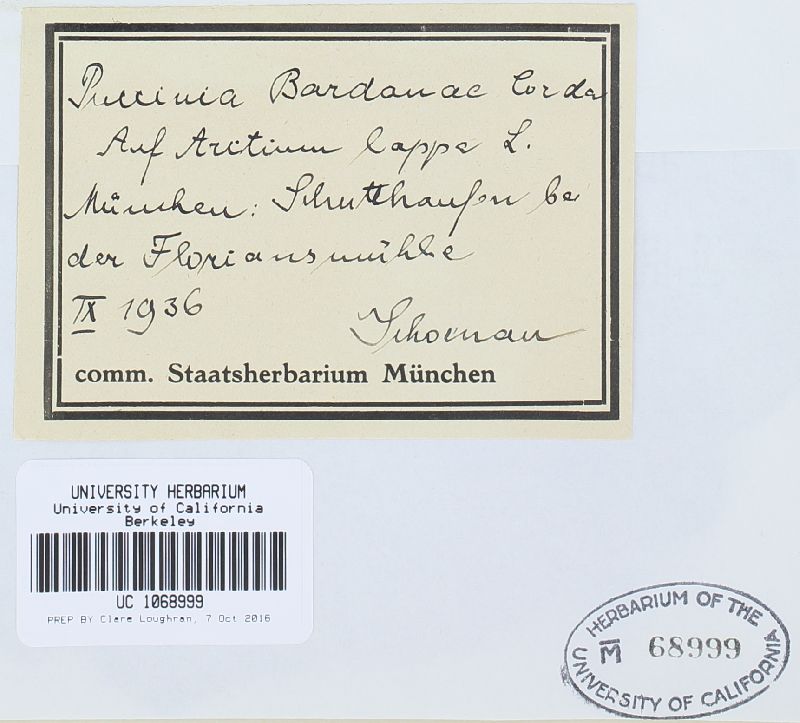 Puccinia Bardanae Corda
Auf Arctium lappa L.
München: Schutthaufen bei
der Floriansmühle
IX 1936
Schoenau
comm. Staatsherbarium München
UNIVERSITY HERBARIUM
University of California
Berkeley
UC 1068999
PREP BY Clare Loughran, 7 Oct 2016
HERBARIUM OF THE
M 68999
UNIVERSITY OF CALIFORNIA